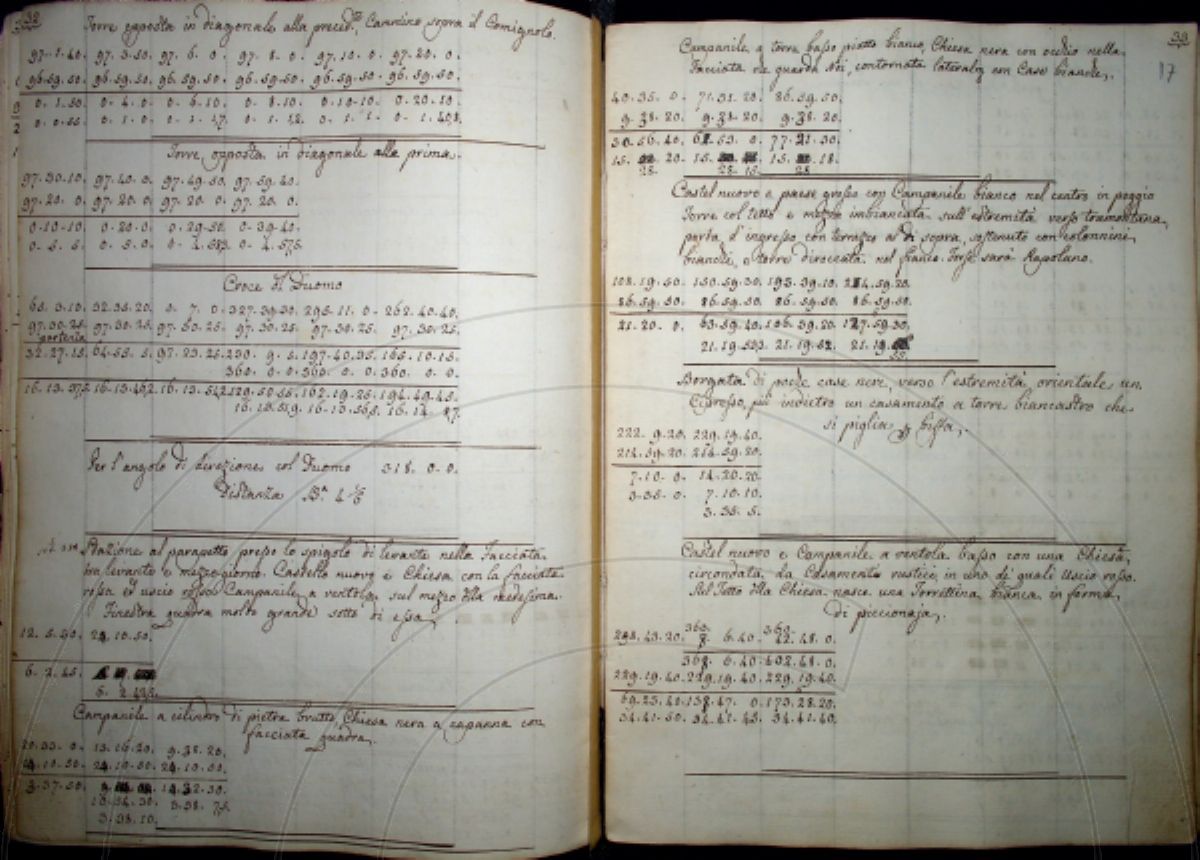 32
Torre opposta in diagonale alla preced.te Cammino sopra il Comignolo.
97. 1. 40. 97. 3. 50. 97. 6. 0. 97. 8. 0. 97. 10. 0. 97. 20. 0.
96. 59. 50. 96. 59. 50. 96. 59. 50. 96. 59. 50. 96. 59. 50. 96. 59. 50.
0. 1. 50. 0. 4. 0. 0. 6. 10. 0. 8. 10. 0. 10. 10. 0. 20. 10.
0. 0. 55. 0. 1. 0. 0. 1. 0. 1. 0. 1. 0. 1.
Torre opposta in diagonale alla prima.
97. 30. 10. 97. 40. 0. 97. 49. 50. 97. 59. 40.
97. 20. 0. 97. 20. 0. 97. 20. 0. 97. 20. 0.
0. 10. 10. 0. 20. 0. 0. 29. 50. 0. 39. 40.
0. 5. 5. 0. 5. 0. 0. 4. 0. 4.
Croce del Duomo
65. 3. 10. 32. 35. 20. 0. 7. 0. 327. 39. 30. 295. 11. 0. 262. 40. 40.
97. 30. 25. 97. 30. 25. 97. 30. 25. 97. 30. 25. 97. 30. 25. 97. 30. 25.
portenza
32. 27. 15. 64. 55. 5. 97. 23. 25. 230. 9. 5. 197. 40. 35. 165. 10. 15.
360. 0. 0. 360. 0. 0. 360. 0. 0.
16. 13. 16. 13. 16. 13. 129. 50. 55. 162. 19. 25. 194. 49. 45.
16. 13. 16. 13. 16. 14.
Per l'angolo di direzione col Duomo 318. 0. 0.
Distanza B.a 4
Stazione al parapetto presso lo spigolo di levante nella Facciata
tra levante e mezzogiorno. Castello nuovo e Chiesa con la facciata
rossa ed uscio rosso Campanile a ventola sul mezzo della medesima.
Finestra quadra molto grande sotto di essa.
12. 5. 30. 24. 10. 50.
6. 2. 45.
6. 2.
Campanile a cilindro di pietra brutto, Chiesa nera a capanna con
facciata quadra.
20. 33. 0. 15. 16. 20. 9. 38. 20.
24. 10. 50. 24. 10. 50. 24. 10. 50.
3. 37. 50. 14. 32. 30.
3. 38.
3. 38. 10.
33
17
Campanile a torre basso piatto bianco, Chiesa nera con occhio nella
Facciata che guarda Noi, contornata lateralm. con Case bianche.
40. 35. 0. 71. 31. 20. 86. 59. 50.
9. 38. 20. 9. 38. 20. 9. 38. 20.
30. 56. 40. 61. 53. 0. 77. 21. 30.
15. 20. 15. 15. 18.
28. 28. 15. 28
Castel nuovo e paese grosso con Campanile bianco nel centro in poggio
Torre col tetto e mezzo imbiancata sull'estremità verso tramontana,
porta d'ingresso con terrazzo al di sopra, sostenuto con colonnini
bianchi, e torre diroccata nel fianco. Forse sarà Rapolano.
108. 19. 50. 150. 59. 30. 193. 39. 10. 214. 59. 20.
86. 59. 50. 86. 59. 50. 86. 59. 50. 86. 59. 50.
21. 20. 0. 63. 59. 40. 106. 39. 20. 127. 59. 30.
21. 19. 21. 19. 52. 21. 19.
55.
Borgata di poche case nere, verso l'estremità orientale un
Cipresso, più indietro un casamento a torre biancastro che
si piglia p. bissa.
222. 9. 20. 229. 19. 40.
214. 59. 20. 214. 59. 20.
7. 10. 0. 14. 20. 20.
3. 35. 0. 7. 10. 10.
3. 35. 5.
Castel nuovo e Campanile a ventola basso con una Chiesa
circondata da Casamento rustici, in uno di quali Uscio rosso.
Sul Tetto della Chiesa nasce una Torrettina bianca in forma
di piccionaja.
360. 360.
298. 43. 20. 8. 6. 40. 42. 48. 0.
368. 6. 40. 402. 48. 0.
229. 19. 40. 229. 19. 40. 229. 19. 40.
69. 23. 40. 138. 47. 0. 173. 28. 20.
34. 41. 50. 34. 41. 45. 34. 41. 40.